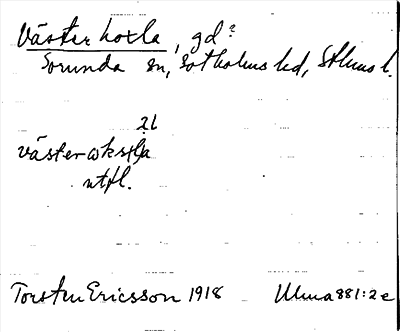 Västerhoxla, gd?
Sorunda sn, Sotholms hd, Sthlms l.
2l
västerωksļa
utfl.
Torsten Ericsson 1918 Ulma 881:2 e